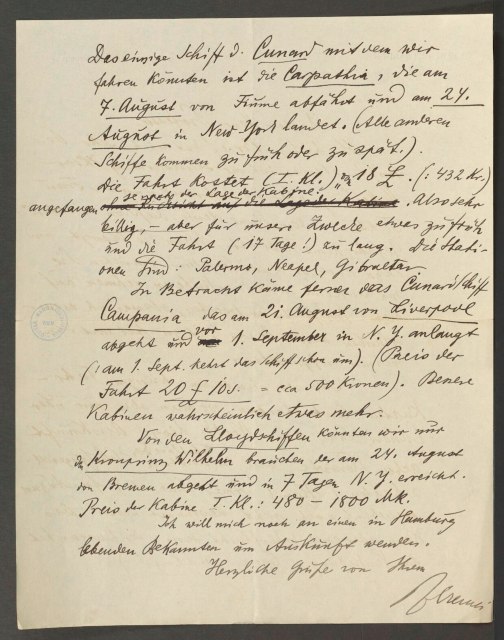 Das einzige Schiff d. Cunard mit dem wir
fahren könnten ist die Carpathia, die am
7. August von Fiume abfährt und am 24.
August in New York landet. (Alle anderen
Schiffe kommen zu früh oder zu spät.)
Die Fahrt kostet (I. Kl.) 18 £. (: 432 Kr.)
je nach der Lage der Kabine.
angefangen ohne Rücksicht auf die Lage der Kabine. Also sehr
billig, – aber für unsere Zwecke etwas zu früh
und die Fahrt (17 Tage!) zu lang. Die Stati-
onen sind: Palermo, Neapel, Gibraltar
In Betracht käme ferner das Cunardschiff
Campania das am 21. August von Liverpool
abgeht und vor 1. September in N. Y. anlangt
(: am 1. Sept. kehrt das Schiff schon um). (Preis der
Fahrt 20 £ 10 s. = cca 500 Kronen). Bessere
Kabinen wahrscheinlich etwas mehr.
Von den Lloydschiffen könnten wir nur
den Kronprinz Wilhelm brauchen der am 24. August
von Bremen abgeht und in 7 Tagen N. Y. erreicht.
Preis der Kabine I. Kl.: 480 – 1800 Mk.
Ich will mich noch an einen in Hamburg
lebenden Bekannten um Auskunft wenden.
Herzliche Grüße von Ihrem
Ferenczi